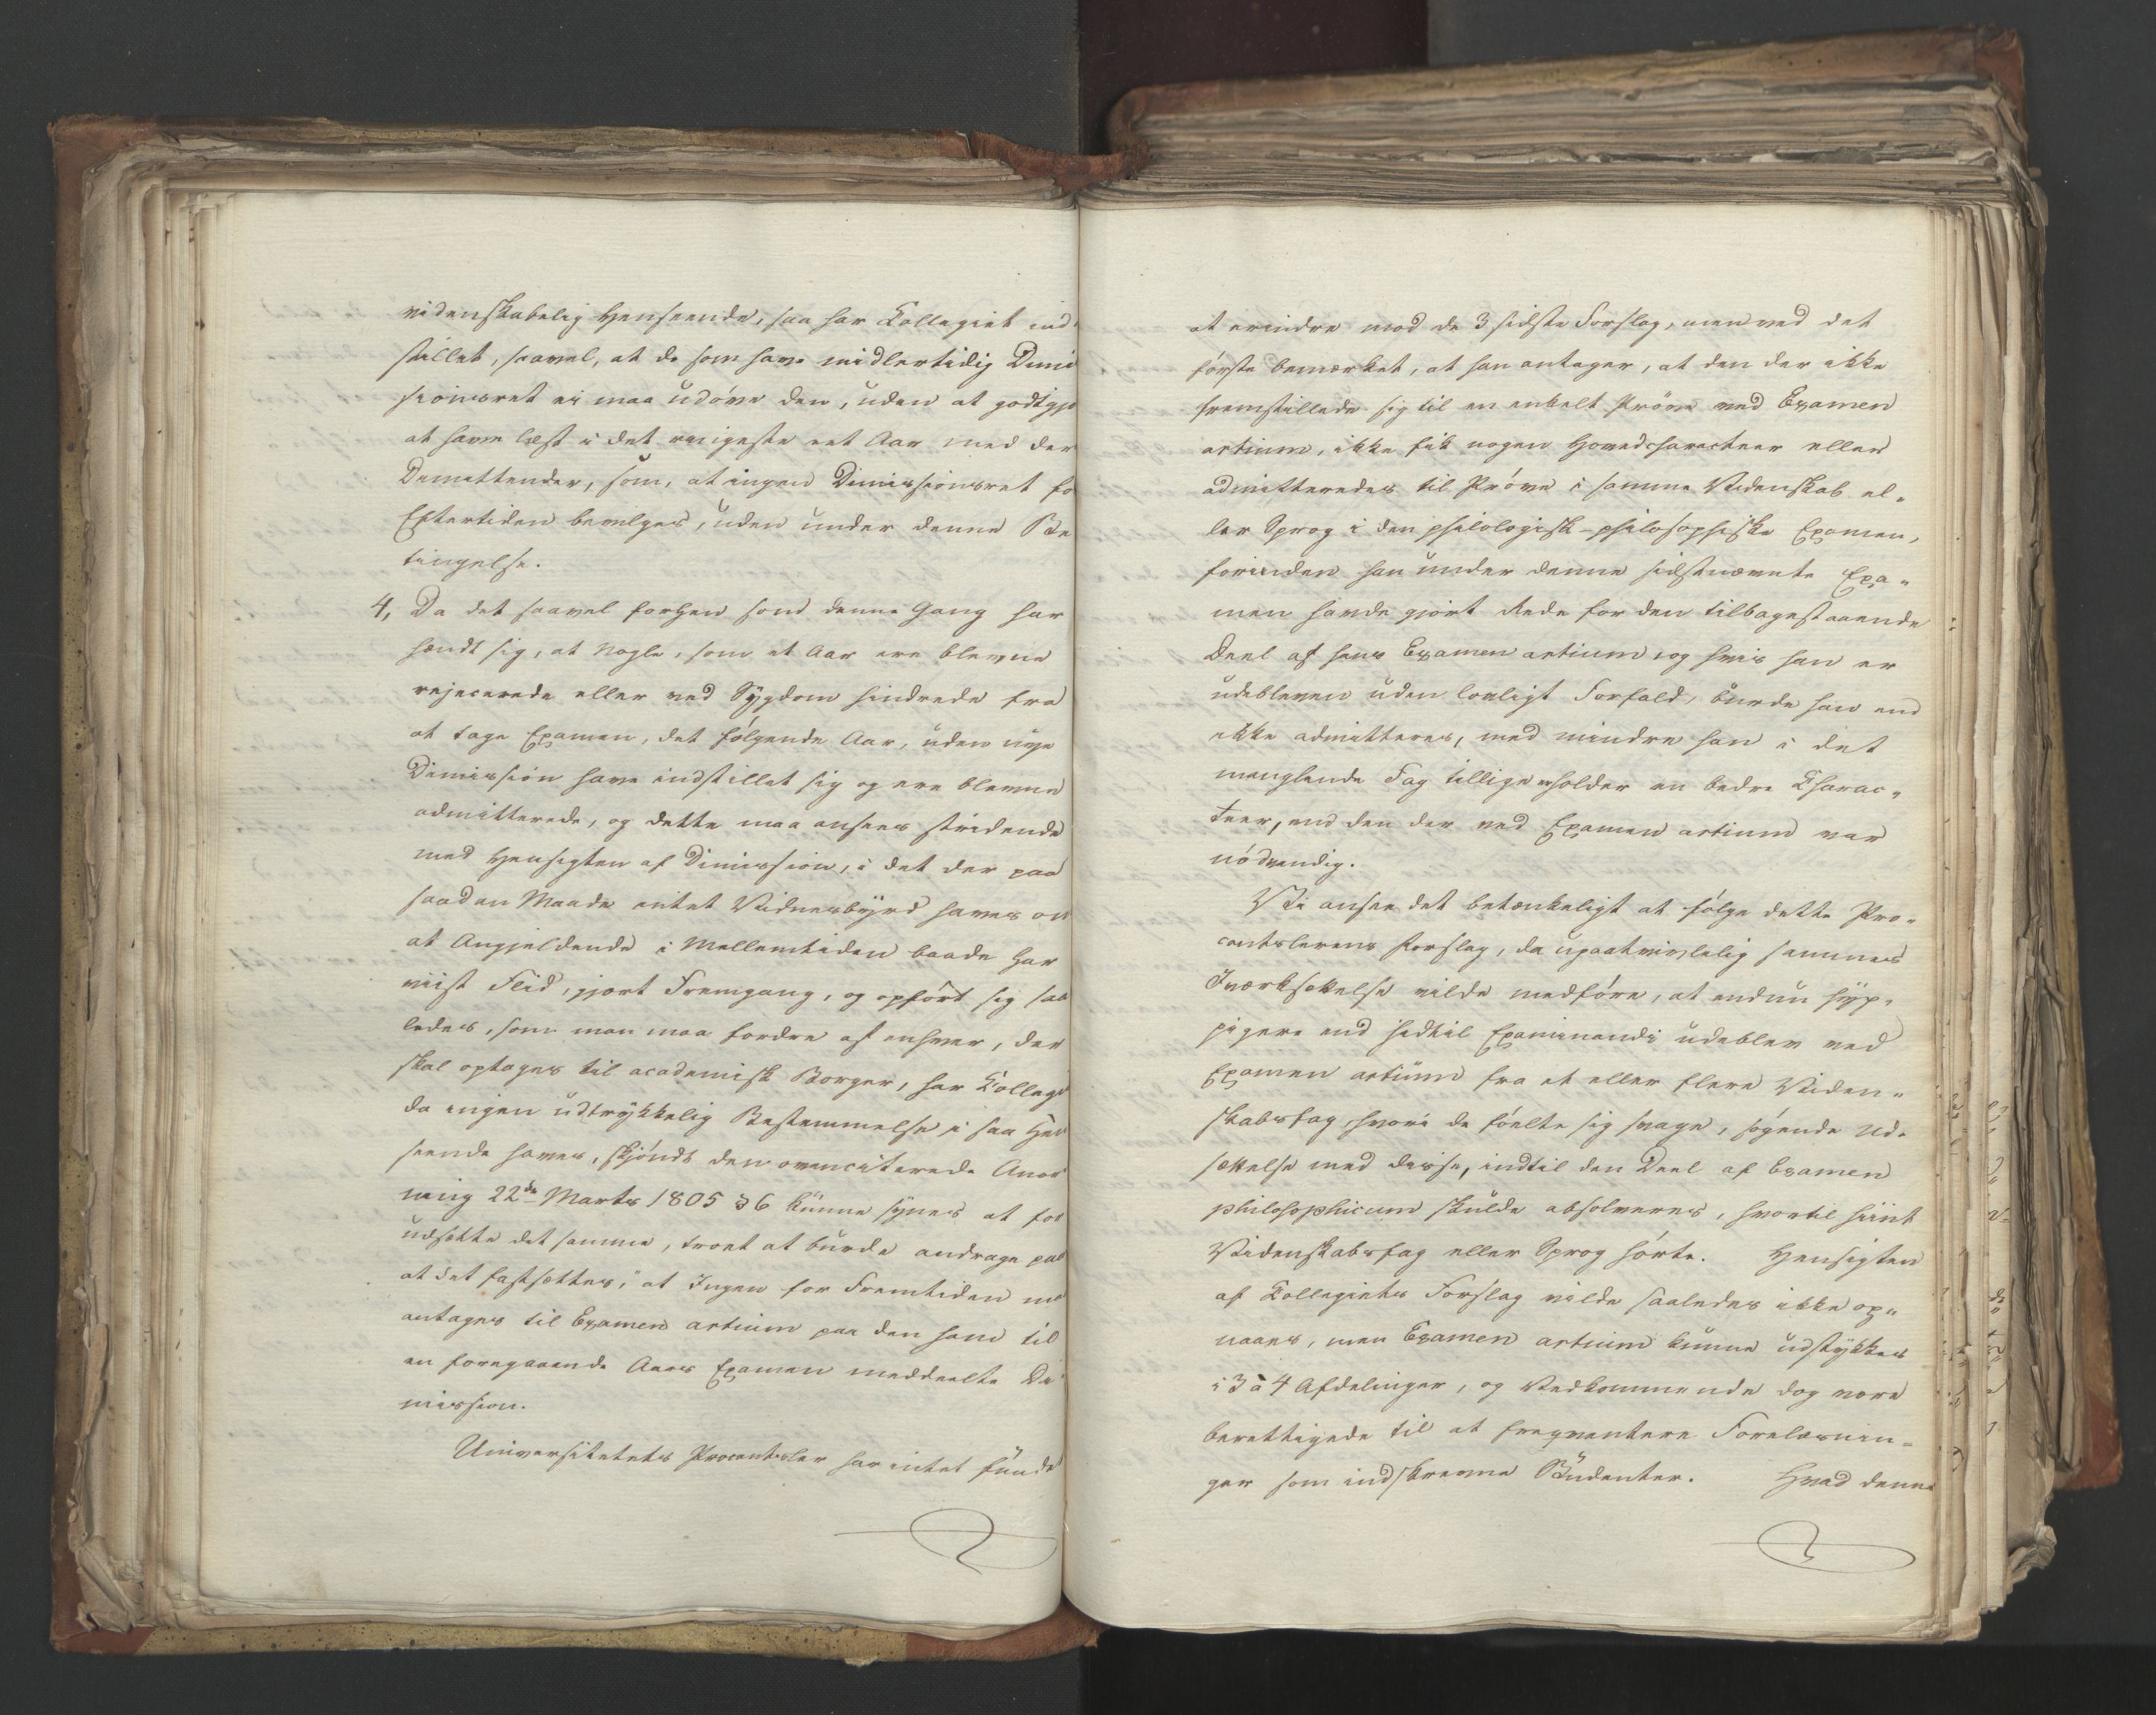 videnskabelig Henseende, saa har Collegiet ind
stillet, saavel, at de som have midlertidig Dimi
sionsret ei maa udøve den, uden at godtgjø
at have læst i det ringeste eet Aar med der
Demittender, som, at ingen Dimissionsret fo
Eftertiden bevilges, uden under denne Be
tingelse.
4, Da det saavel forhen som denne Gang har
hændt sig, at Nogle, som et Aar ere blevne
rejecerede eller ved Sygdom hindrede fra
at tage Examen, det følgende Aar, uden nye
Dimission have indstillet sig og ere blevne
admitterede, og dette maa ansees stridende
med Hensigten af Dimission, i det der paa
saadan Maade intet Vidnesbyrd haves om
at Angjeldende i Mellemtiden baade har
viist Flid, gjort Fremgang, og opført sig saa
ledes, som man maa fordre af enhver, der
skal optages til academisk Borger, har Colleg
da ingen udtrykkelig Bestemmelse i saa Hen
seende haves, skjøndt den ovenciterede Anor
ning 22de Marts 1805 § 6 kunne synes at for
udsette det samme, troet at burde andrage paa
at det fastsettes, "at Ingen for Fremtiden maa
antages til Examen artium paa den ham til
en foregaaende Aars Examen meddeelte Di
mission.
Universitetets Procantsler har intet fundet
at erindre mod de 3 sidste Forslag, men ved det
første bemærket, at han antager, at den der ikke
fremstillede sig til en enkelt Prøve ved Examen
artium, ikke fik nogen Hovedcharacteer eller
admitteredes til Prøve i samme Videnskab el„
ler Sprog i den philologisk-philosophiske Examen,
forinden han under denne sidstnævnte Exa„
men havde gjort Rede for den tilbagestaaende
Deel af hans Examen artium, og hvis han er
udebleven uden lovligt Forfald, burde han end
ikke admitteres, med mindre han i det
manglende Fag tillige erholder en bedre Charac„
teer, end den der ved Examen artium var
nødvendig.
Vi ansee det betænkeligt at følge dette Pro„
cantslerens Forslag, da upaatvivlelig sammes
Iværksettelse vilde medføre, at endnu hyp„
pigere end hidtil Examinandi udeblev ved
Examen artium fra et eller flere Viden„
skabsfag, hvori de føelte sig svage, søgende Ud„
settelse med disse, indtil den Deel af Examen
philosophicum skulde absolveres, hvortil hiint
Videnskabsfag eller Sprog hørte. Hensigten
af Collegiets Forslag vilde saaledes ikke op„
naaes, men Examen artium kunne udstykkes
i 3 à 4 Afdelinger, og Vedkommende dog være
berettigede til at freqventere Forelæsnin„
ger som indskrevne Studenter. Hvad denne